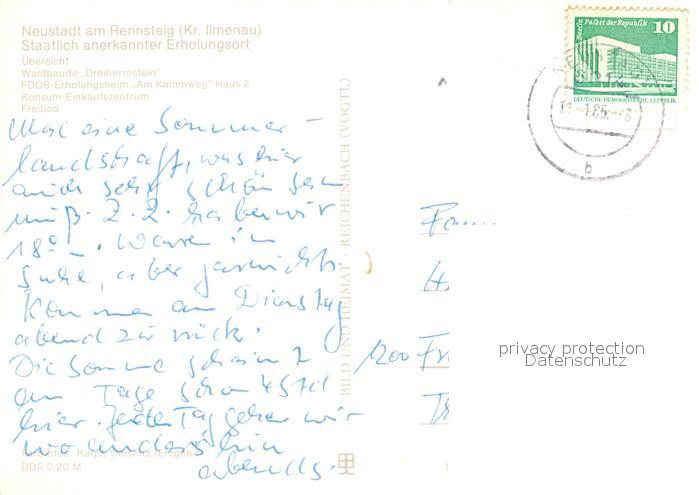 Neustadt am Rennsteig (Kr. Ilmenau)
Staatlich anerkannter Erholungsort
Übersicht
Waldbaude „Dreiherrnstein"
FDGB-Erholungsheim „Am Kammweg" Haus 2
Konsum-Einkaufszentrum
Freibad
Mal eine Sommer-
landschaft, was hier
auch sehr schön sein
muß. Z. Z. haben wir
18°-. Waren in
Suhl, aber garnichts.
Kommen am Dienstag
abend zurück.
Die Sonne scheint
am Tage schon 4 Std
hier. Jeden Tag gehen wir
woanders hin
abends.
Farbfotos: Karpf, Oelsnitz (Erzgeb.)
DDR 0,20 M
BILD UND HEIMAT · REICHENBACH (VOGTL)
Berlin Palast der Republik
10
DEUTSCHE DEMOKRATISCHE REPUBLIK
85
b
Fa.....
1200 Fr
privacy protection
Datenschutz